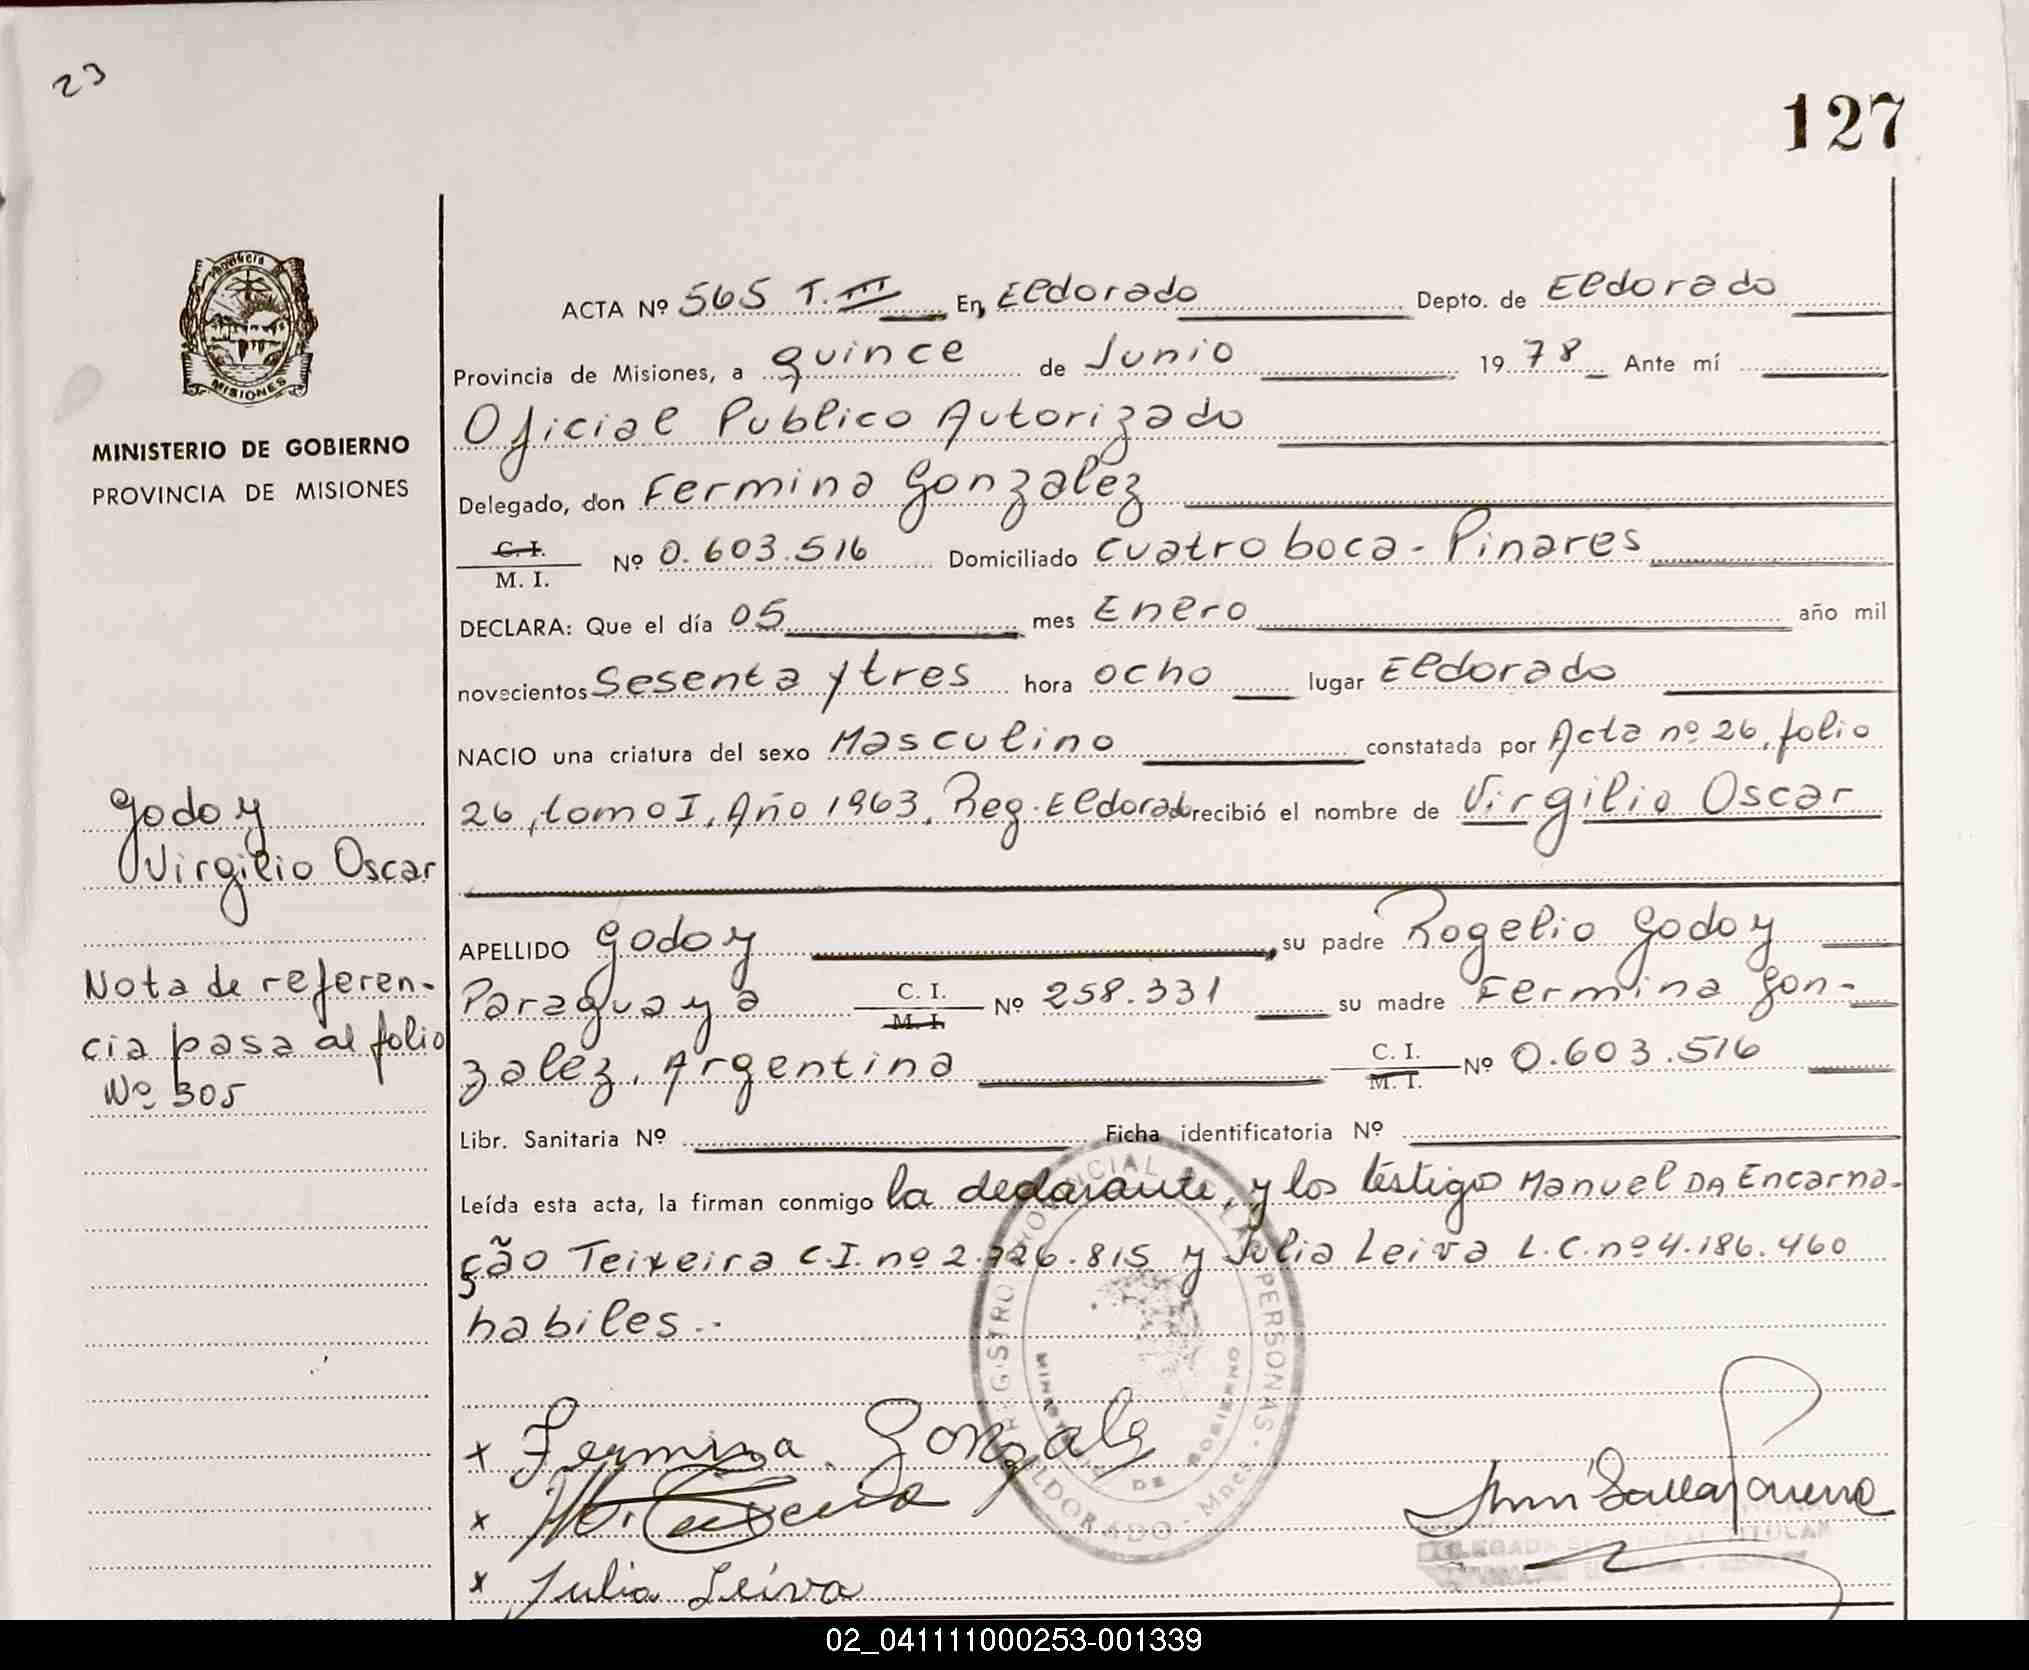 23
127
Provincia de
MISIONES
MINISTERIO DE GOBIERNO
PROVINCIA DE MISIONES
ACTA Nº 565 T. III En Eldorado Depto. de Eldorado
Provincia de Misiones, a quince de Junio 1978 Ante mí
Oficial Publico Autorizado
Delegado, don Fermina Gonzalez
C. I. / M. I. Nº 0.603.516 Domiciliado cuatro boca - Pinares
DECLARA: Que el día 05 mes Enero año mil
novecientos Sesenta y tres hora ocho lugar Eldorado
NACIO una criatura del sexo Masculino constatada por Acta nº 26, folio
26, tomo I, Año 1963, Reg. Eldorado recibió el nombre de Virgilio Oscar
APELLIDO Godoy, su padre Rogelio Godoy
Paraguaya C. I. / M. I. Nº 258.331 su madre Fermina Gon-
zalez, Argentina C. I. / M. I. Nº 0.603.516
Libr. Sanitaria Nº Ficha identificatoria Nº
Leída esta acta, la firman conmigo la declarante, y los testigo Manuel DA Encarna-
ção Teixeira C.I. nº 2.726.815 y Julia Leiva L.C. nº 4.186.460
habiles..
Godoy
Virgilio Oscar
Nota de referen-
cia pasa al folio
Nº 305
x Fermina Gonzalez
x
x Julia Leiva
REGISTRO PROVINCIAL DE LAS PERSONAS
MINISTERIO DE GOBIERNO
ELDORADO - Mnes.
DELEGADA TITULAR
02_041111000253-001339